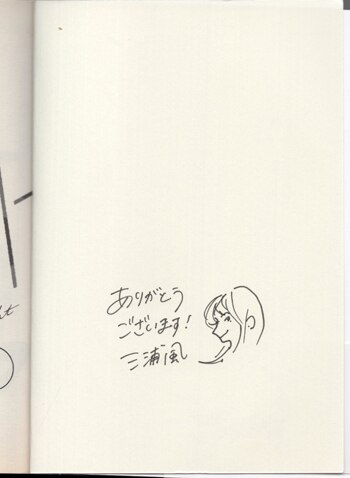 ありがとう
ございます!
三浦風
ht